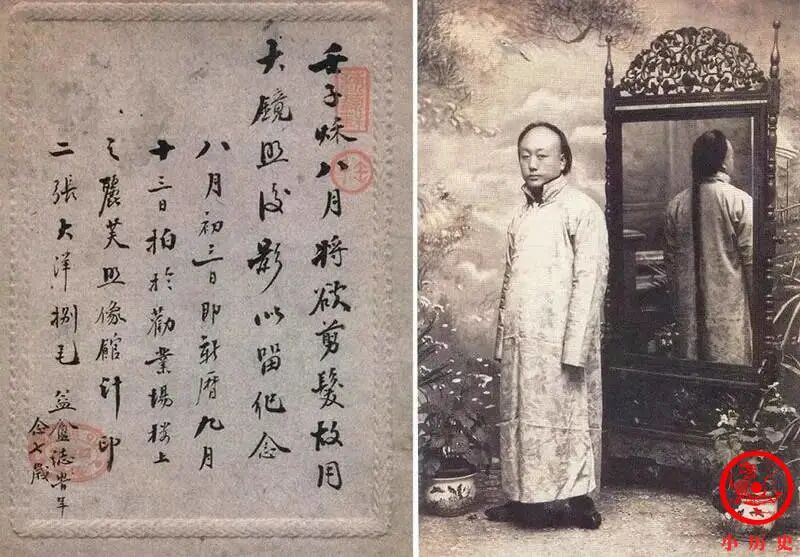 壬子秌八月將欲剪髮故用
大鏡照後影以留紀念
八月初三日即新曆九月
十三日拍於勸業場樓上
之麗芙照像館計印
二張大洋捌毛 益盦誌峕年
念七歲
小历史